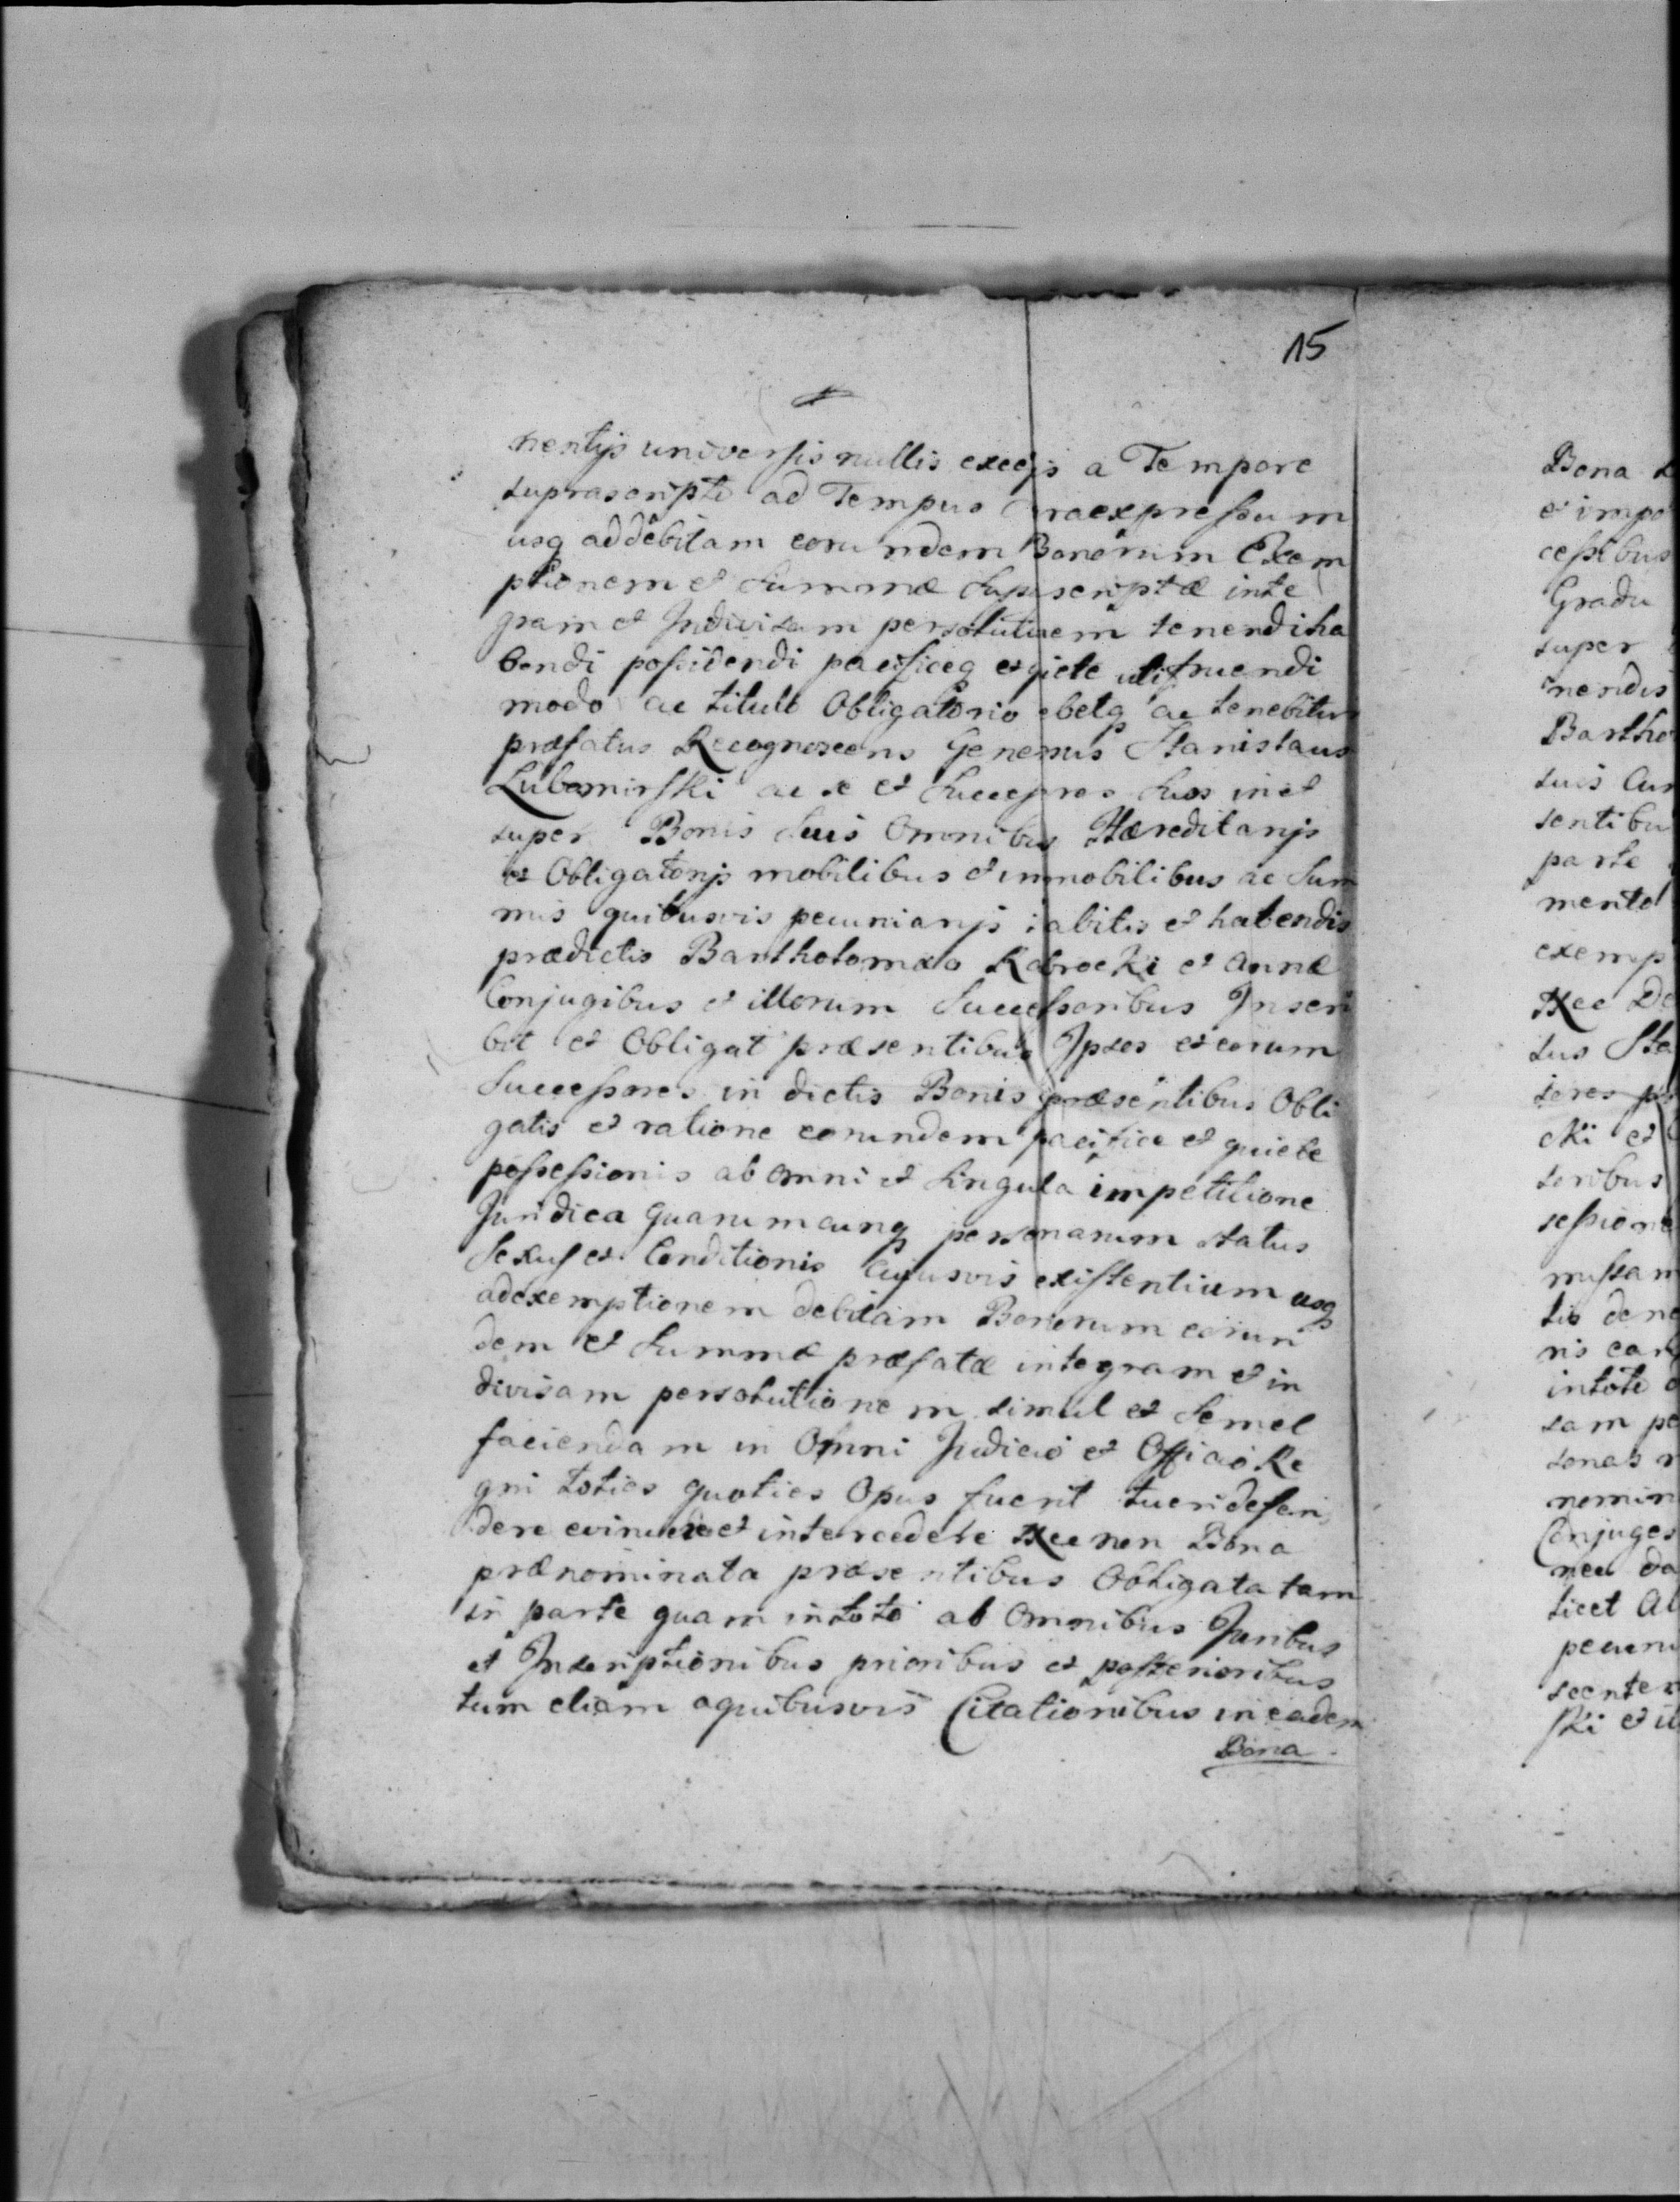 15
nentijs universis nullis exceptis a Tempore
suprascripto ad Tempus praexpressum
usq ad debitam eorundem Bonorum Exem
ptionem et Summæ suprascriptæ inte
gram et Indivisam persolutionem tenendi ha
bendi possidendi pacificeq et quiete utifruendi
modo ac titulo Obligatorio debetq ac tenebitur
præfatus Recognoscens Generosus Stanislaus
Lubomirski ac se et Successores suos in et
super Bonis suis Omnibus Hæreditarijs
et Obligatorijs mobilibus et immobilibus ac Sum
mis quibusvis pecuniarijs habitis et habendis
prædictis Bartholomæo Robrocki et Annæ
Conjugibus et illorum Successoribus Inscri
bit et Obligat præsentibus Ipsos et eorum
Successores in dictis Bonis præsentibus Obli
gatis et ratione eorundem pacifice et quiete
possessionis ab omni et singula impetitione
Juridica Quarumcunq personarum status
Sexus et Conditionis Cujusvis existentium usq
ad exemptionem debitam Bonorum eorun
dem et Summæ præfatæ integram et in
divisam persolutionem simul et Semel
faciendam in Omni Judicio et Officio Re
gni toties quoties Opus fuerit tueri defen
dere evincere et intercedere Nec non Bona
prænominata præsentibus Obligata tam
in parte quam in toto ab Omnibus Juribus
et Inscriptionibus prioribus et posterioribus
tum etiam a quibusvis Citationibus in eadem
Bona
Bona
et impo
cessibus
Gradu
super
nendis
Bartho
suis Cur
sentibu
parte
mento
exemp
Nec De
sus Sta
cki et
soribus
sessione
missam
tis
ris
in toto
sam pe
sonas
nomin
Conjuges
nec da
licet Al
pecuni
scenten
ski et il